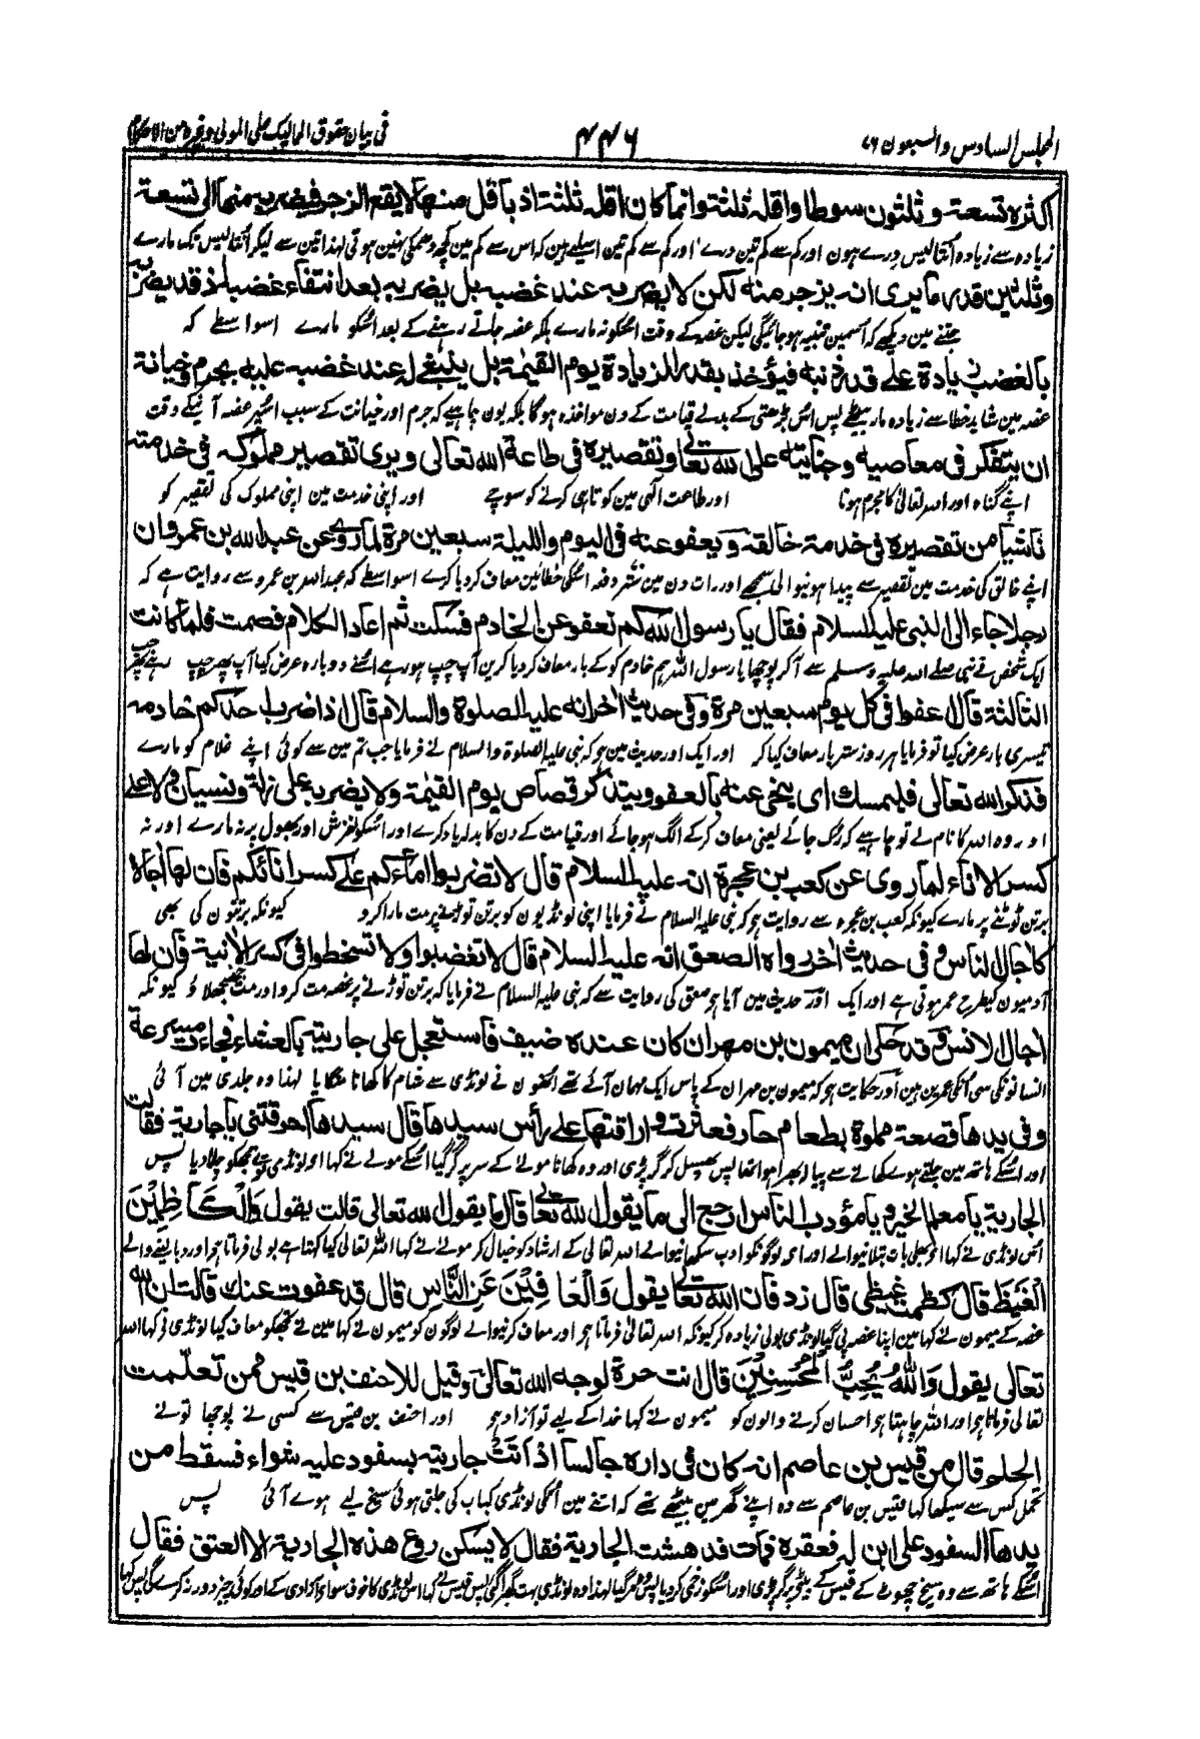 المجلس السادس والسبعون ٧٦ ٤٤٦ فی بیان حقوق الممالیک علی المولی وغیره من الاحکام
اکثره تسعة وثلثون سوطا واقله ثلثة وانما کان اقله ثلثة اذ باقل منها لایقع الزجر فیضربه منها الی تسعة
زیاده سے زیاده اُنتالیس دُرے ہون اور کم سے کم تین دُرے اور کم سے کم تین اسلیے ہین کہ اس سے کم مین کچھ دھمکی نہین ہوتی لہذا تین سے لیکر اُنتالیس تک مارے
وثلثین قدر ما یری انه ینزجر منه لکن لا یضربه عند غضبه بل یضربه بعد انتفاء غضبه اذ قد یضربه
جتنے مین دیکھے کہ اسمین تنبیہ ہوجائیگی لیکن غصہ کے وقت اسکو نہ مارے بلکہ غصہ جاتے رہنے کے بعد اسکو مارے اسواسطے کہ
بالغضب زیادة علی قدر ذنبه فیؤخذ بقدر الزیادة یوم القیمة بل ینبغی له عند غضبه علیه بجرم وخیانة
غصہ مین شاید خطا سے زیادہ مار بیٹھے پس اس بڑھتی کے بدلے قیامت کے دن مواخذہ ہوگا بلکہ یون چاہیے کہ جرم اور خیانت کے سبب اسپر غصہ آنیکے وقت
ان یتفکر فی معاصیه وجنایته علی الله تعالی وتقصیره فی طاعة الله تعالی ویری تقصیر مملوکه فی خدمته
اپنے گناہ اور اللہ تعالیٰ کا مجرم ہونا اور طاعت الٰہی مین کوتاہی کرنے کو سوچے اور اپنی خدمت مین اپنی مملوک کی تقصیر کو
ناشیا من تقصیره فی خدمة خالقه ویعفو عنه فی الیوم واللیلة سبعین مرة لما روی عن عبد الله بن عمرو ان
اپنے خالق کی خدمت مین تقصیر سے پیدا ہونیوالی سمجھے اور رات دن مین ستر دفعہ اسکی خطائین معاف کردیا کرے اسواسطے کہ عبداللہ بن عمرو سے روایت ہے کہ
رجلا جاء الی النبی علیه السلام فقال یا رسول الله کم تعفو عن الخادم فسکت ثم اعاد الکلام فصمت فلما کانت
ایک شخص نے نبی صلے اللہ علیہ وسلم سے آکر پوچھا یا رسول اللہ ہم خادم کو کے بار معاف کردیا کرین آپ چپ ہورہے اسنے دوبارہ عرض کیا آپ پھر چپ رہے پھر جب
الثالثة قال اعفوا فی کل یوم سبعین مرة وفی حدیث اخر انه علیه الصلوة والسلام قال اذا ضرب احدکم خادمه
تیسری بار عرض کیا تو فرمایا ہر روز ستر بار معاف کیا کر اور ایک اور حدیث مین ہو کہ نبی علیہ الصلوۃ والسلام نے فرمایا جب تم مین سے کوئی اپنے غلام کو مارے
فذکر الله تعالی فلیمسک ای ینحی عنه بالعفو ویتذکر قصاص یوم القیمة ولا یضربه علی زلة ونسیان ولا علی
اور وہ اللہ کا نام لے تو چاہیے کہ رُک جائے یعنی معاف کرکے الگ ہوجائے اور قیامت کے دن کا بدلہ یاد کرے اور اسکو لغزش اور بھول پر نہ مارے اور نہ
کسر الاناء لما روی عن کعب بن عجرة انه علیه السلام قال لا تضربوا اماءکم علی کسر انائکم فان لها اجالا
برتن ٹوٹنے پر مارے کیونکہ کعب بن عجرہ سے روایت ہو کہ نبی علیہ السلام نے فرمایا اپنی لونڈیون کو برتن توڑنے پر مت مارا کرو کیونکہ برتنون کی بھی
کاجال الناس وفی حدیث اخر رواه الصعق انه علیه السلام قال لا تغضبوا ولا تسخطوا فی کسر الانیة فان لها
آدمیون کیطرح عمر ہوتی ہے اور ایک اور حدیث مین آیا ہو صعق کی روایت سے کہ نبی علیہ السلام نے فرمایا کہ برتن توڑنے پر غصہ مت کرو اور مت جھنجھلاؤ کیونکہ
اجال الانس وقد حکی ان میمون بن مهران کان عنده ضیف فاستعجل علی جاریته بالعشاء فجاءت مسرعة
انسانونکی سی اُنکی عمرین ہین اور حکایت ہو کہ میمون بن مہران کے پاس ایک مہمان آئے تھے انھون نے لونڈی سے شام کا کھانا منگایا لہذا وہ جلدی مین آئی
وفی یدها قصعة مملوة بطعام حار فعثرت واراقتها علی رأس سیدها قال سیدها احرقتنی یا جاریة فقالت
اور اسکے ہاتھ مین جلتے ہوے کھانے سے پیالا بھرا ہوا تھا پس پھسل کر گر پڑی اور وہ کھانا مولا کے سر پر گرگیا اسکے مولے نے کہا ای لونڈی تونے مجھکو جلادیا پس
الجاریة یا معلم الخیر ویا مؤدب الناس ارجع الی ما یقول الله تعالی قال ما یقول الله تعالی قالت یقول وَالْکَاظِمِیْنَ
اس لونڈی نے کہا ای بھلی بات بتلانیوالے اور ای لوگونکو ادب سکھانیوالے اللہ تعالیٰ کے ارشاد کو خیال کر مولانے کہا اللہ تعالیٰ کیا کہتا ہے بولی فرماتا ہو اور دبا لینے والے
الْغَیْظَ قال کظمت غیظی قال زد فان الله تعالی یقول وَالْعَافِیْنَ عَنِ النَّاسِ قال قد عفوت عنک قالت ان الله
غصہ کے میمون نے کہا مین اپنا غصہ پی گیا لونڈی بولی زیادہ کر کیونکہ اللہ تعالیٰ فرماتا ہو اور معاف کرنیوالے لوگون کو میمون نے کہا مین نے تجھکو معاف کیا لونڈی نے کہا اللہ
تعالی یقول وَاللهُ یُحِبُّ الْمُحْسِنِیْنَ قال انت حرة لوجه الله تعالی وقیل للاحنف بن قیس ممن تعلمت
تعالیٰ فرماتا ہو اور اللہ چاہتا ہو احسان کرنے والون کو میمون نے کہا خدا کے لیے تو آزاد ہو اور احنف بن قیس سے کسی نے پوچھا تونے
الحلم قال من قیس بن عاصم انه کان فی داره جالسا اذ اتت جاریته بسفود علیه شواء فسقط من
تحمل کس سے سیکھا کہا قیس بن عاصم سے وہ اپنے گھر مین بیٹھے تھے کہ اتنے مین اُنکی لونڈی کباب کی جلتی ہوئی سیخ لیے ہوے آئی پس
یدها السفود علی ابن له فعقره فمات فدهشت الجاریة فقال لا یسکن روع هذه الجاریة الا العتق فقال
اسکے ہاتھ سے وہ سیخ چھوٹ کے قیس کے بیٹے پر گر پڑی اور اسکو زخمی کردیا پس مرگیا لہذا وہ لونڈی بہت گھبراگئی پس قیس نے کہا اس لونڈی کا خوف سواے آزادی کے اور کوئی چیز دور نہ کرے گی پس کہا